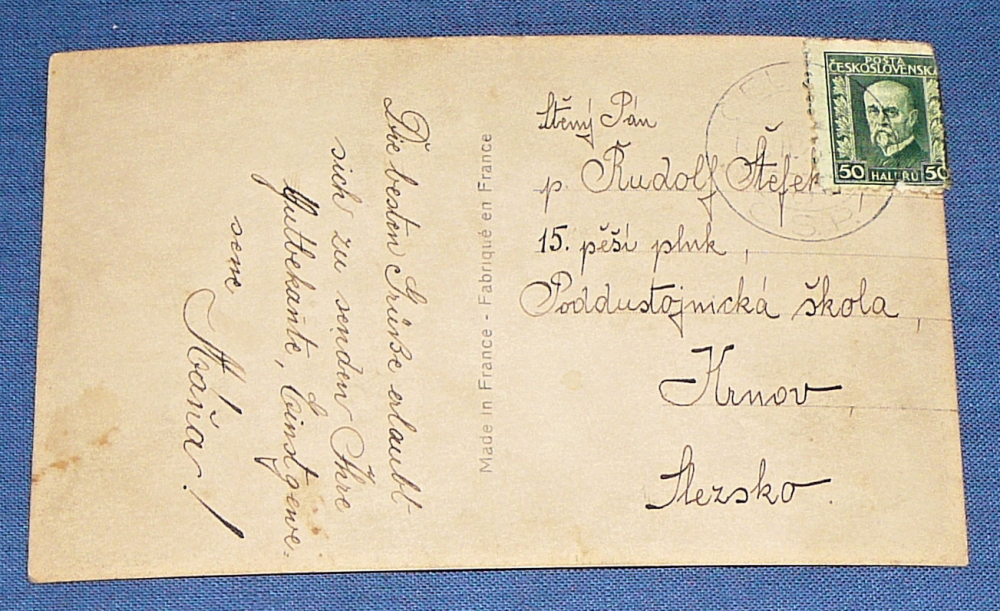 Die besten Grüsse erlaubt
sich zu senden Ihre
Gutbekante, Einstgewe-
sene
Máňa!
Made in France - Fabriqué en France
Ctěný Pán
p. Rudolf Štefek,
15. pěší pluk,
Poddustojnická škola,
Krnov
Slezsko.
POŠTA
ČESKOSLOVENSKÁ
50 HALÉŘŮ 50